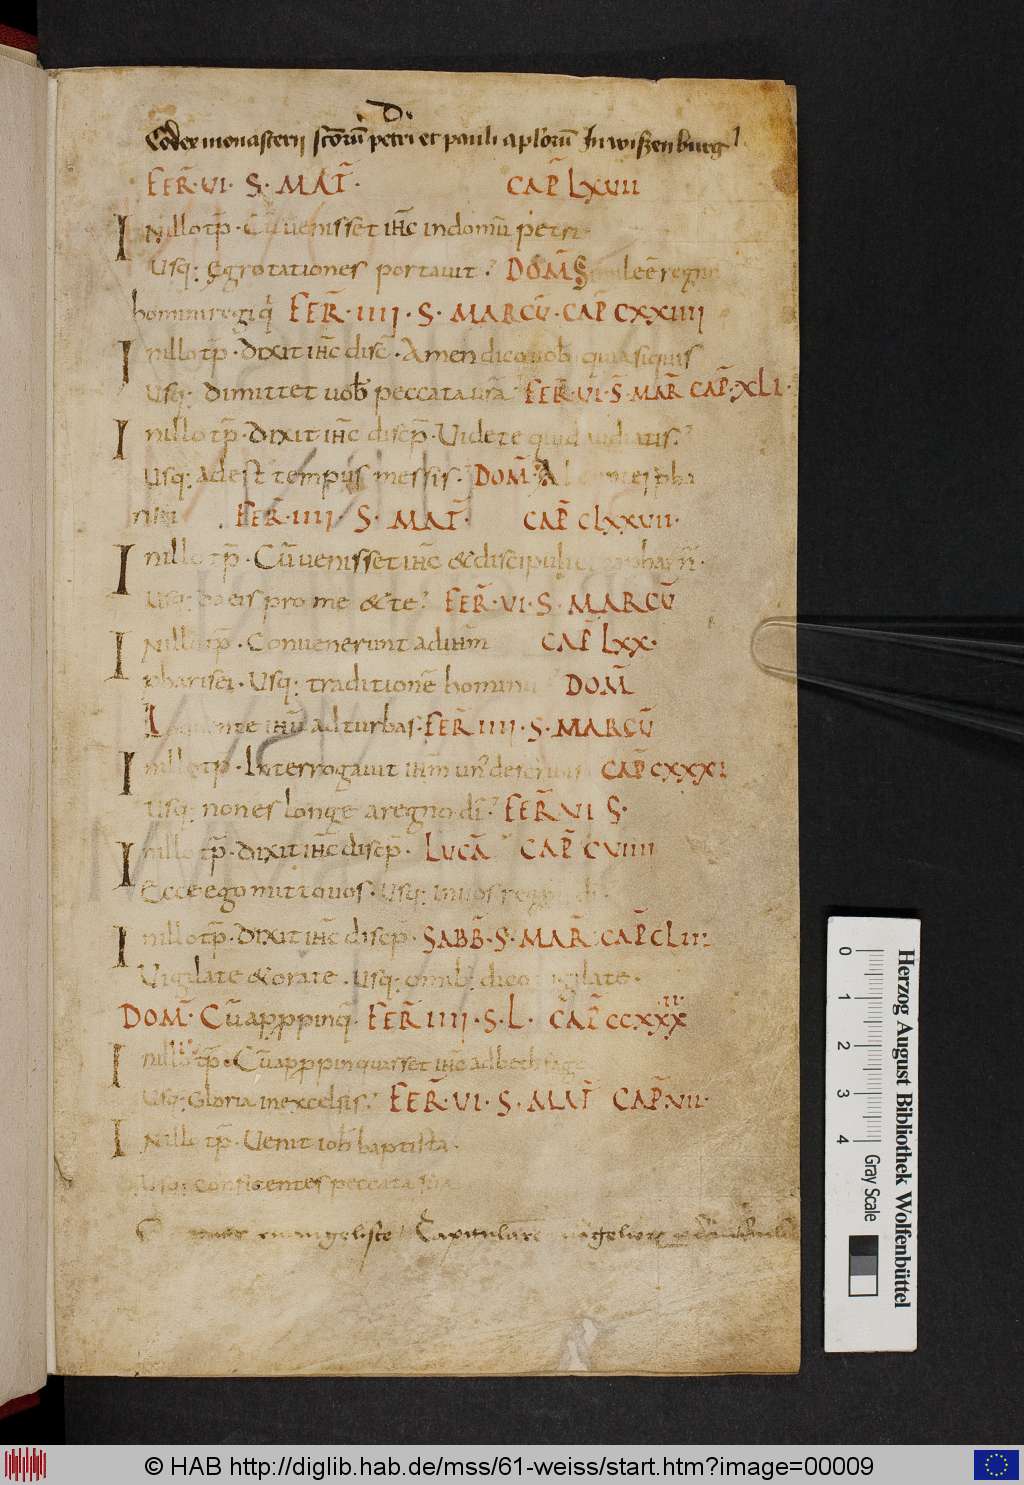 D.
Codex monasterij sctoru͂ petri et pauli aplorum In wiszenburg
FER̅·VI· S· MAT̅· CAP̅ LXVII
Nillo tp̅· Cu̅ uenisset ih̅c in domu̅ petri
Usq; Egrotationes portauit. DOM̅ S
homini regi q FER̅·IIII· S· MARCU̅· CAP̅ CXXIIII
Inillo tp̅· Dixit ih̅c disc̅· Amen dico uob̅ quia siquis
Usq; dimittet uob̅ peccata ur̅a FER̅·VI·S̅·MAR̅ CAP̅·XLI·
Inillo tp̅· Dixit ih̅c discp̅· Uidete quid audiatis.
Usq; adest tempus messis. DOM̅ A
FER̅·IIII· S· MAT̅· CAP̅ CLXXVII·
Inillo tp̅· Cu̅ uenisset ih̅c & discipuli
Usq; da eis pro me & te. FER̅·VI·S· MARCU̅
INillo tp̅· Conuenerunt ad ih̅m CAP̅ LXX·
pharisei· Usq; traditione̅ hominu DOM̅
ih̅u ad turbas· FER̅ IIII·S·MARCU̅
Inillo tp̅· Interrogauit ih̅m un' de scribis CAP̅ CXXXI
Usq; non es longe a regno di̅. FER̅ VI S·
Inillo tp̅· Dixit ih̅c discp̅· LUCA̅ CAP̅ CVIIII
Ecce ego mitto uos· Usq; in uos regnu di
Inillo tp̅· Dixit ih̅c discp̅· SABB̅·S·MAR̅ CAP̅ CLII
Uigilate & orate· Usq; omib; dico uigilate
DOM̅· Cu̅ appropinq· FER̅ IIII·S·L· CAP̅ CCXXX II
Inillo tp̅· Cu̅ appropinquasset ih̅c ad bethfage
Usq; Gloria in excelsis. FER̅·VI·S·MAT̅ CAP̅·VII·
INillo tp̅· Uenit ioh̅ baptista·
Usq; confitentes peccata sua
euangeliste Capitulare
Herzog August Bibliothek Wolfenbüttel
0 1 2 3 4
Gray Scale
© HAB http://diglib.hab.de/mss/61-weiss/start.htm?image=00009